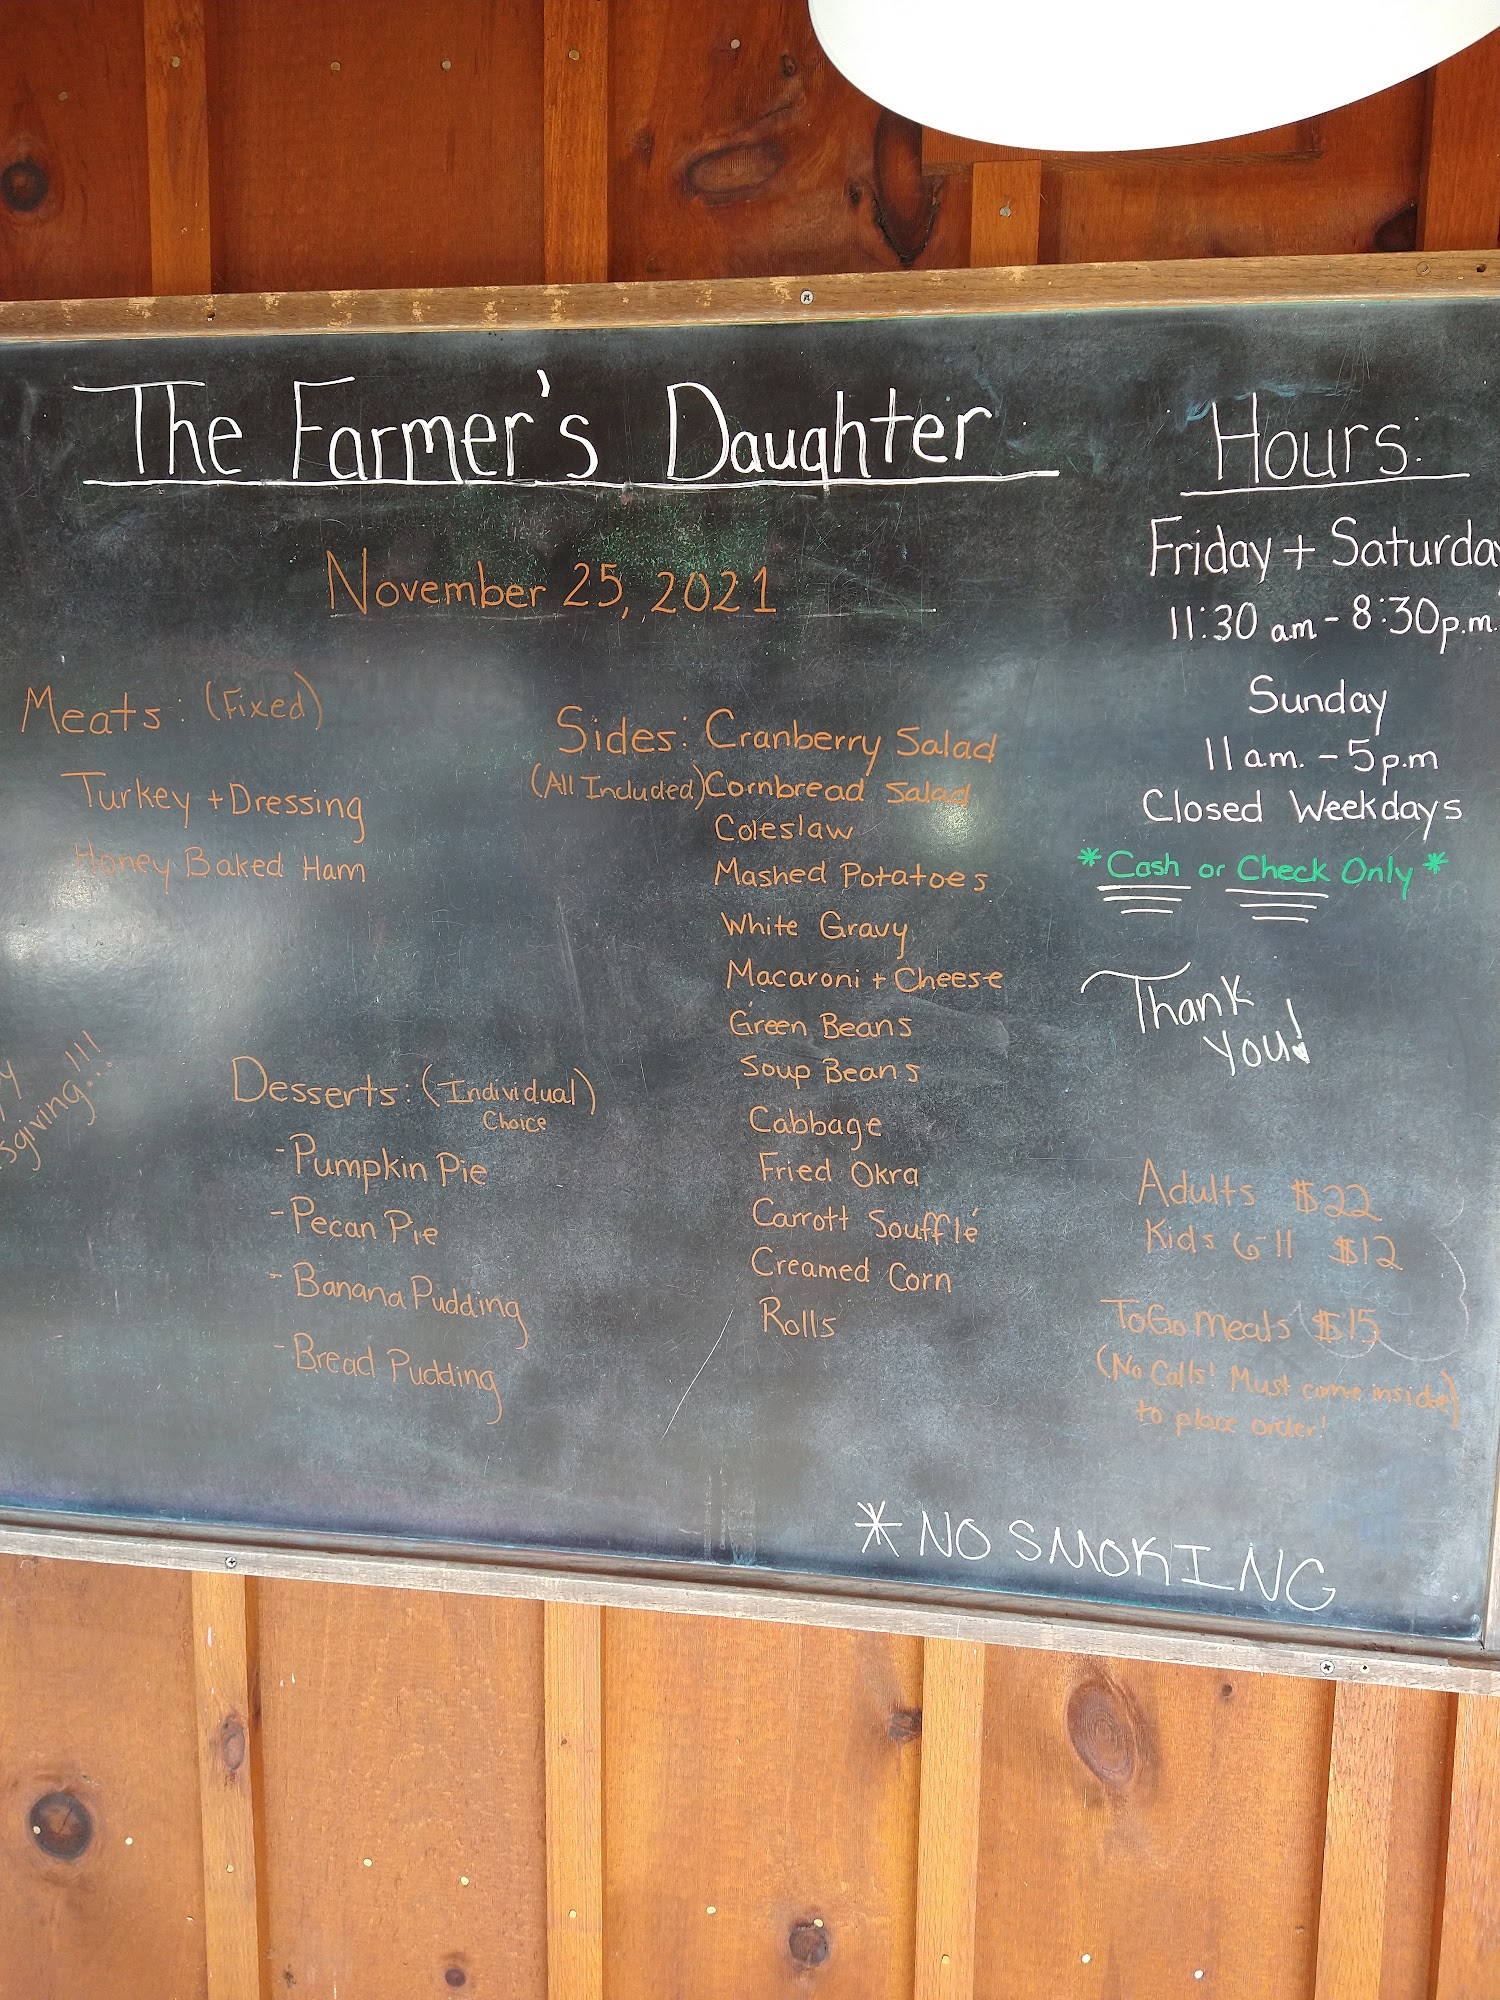 The Farmer's Daughter
November 25, 2021
Meats: (Fixed)
Turkey + Dressing
Honey Baked Ham
sgiving...!!!
Desserts: (Individual)
Choice
- Pumpkin Pie
- Pecan Pie
- Banana Pudding
- Bread Pudding
Sides: Cranberry Salad
(All Included) Cornbread Salad
Coleslaw
Mashed Potatoes
White Gravy
Macaroni + Cheese
Green Beans
Soup Beans
Cabbage
Fried Okra
Carrott Soufflé
Creamed Corn
Rolls
Hours:
Friday + Saturday
11:30 am - 8:30p.m.
Sunday
11am. - 5p.m
Closed Weekdays
*Cash or Check Only*
Thank
you!
Adults $22
Kids 6-11 $12
ToGo meals $15
(No Calls! Must come inside)
to place order!
*NO SMOKING